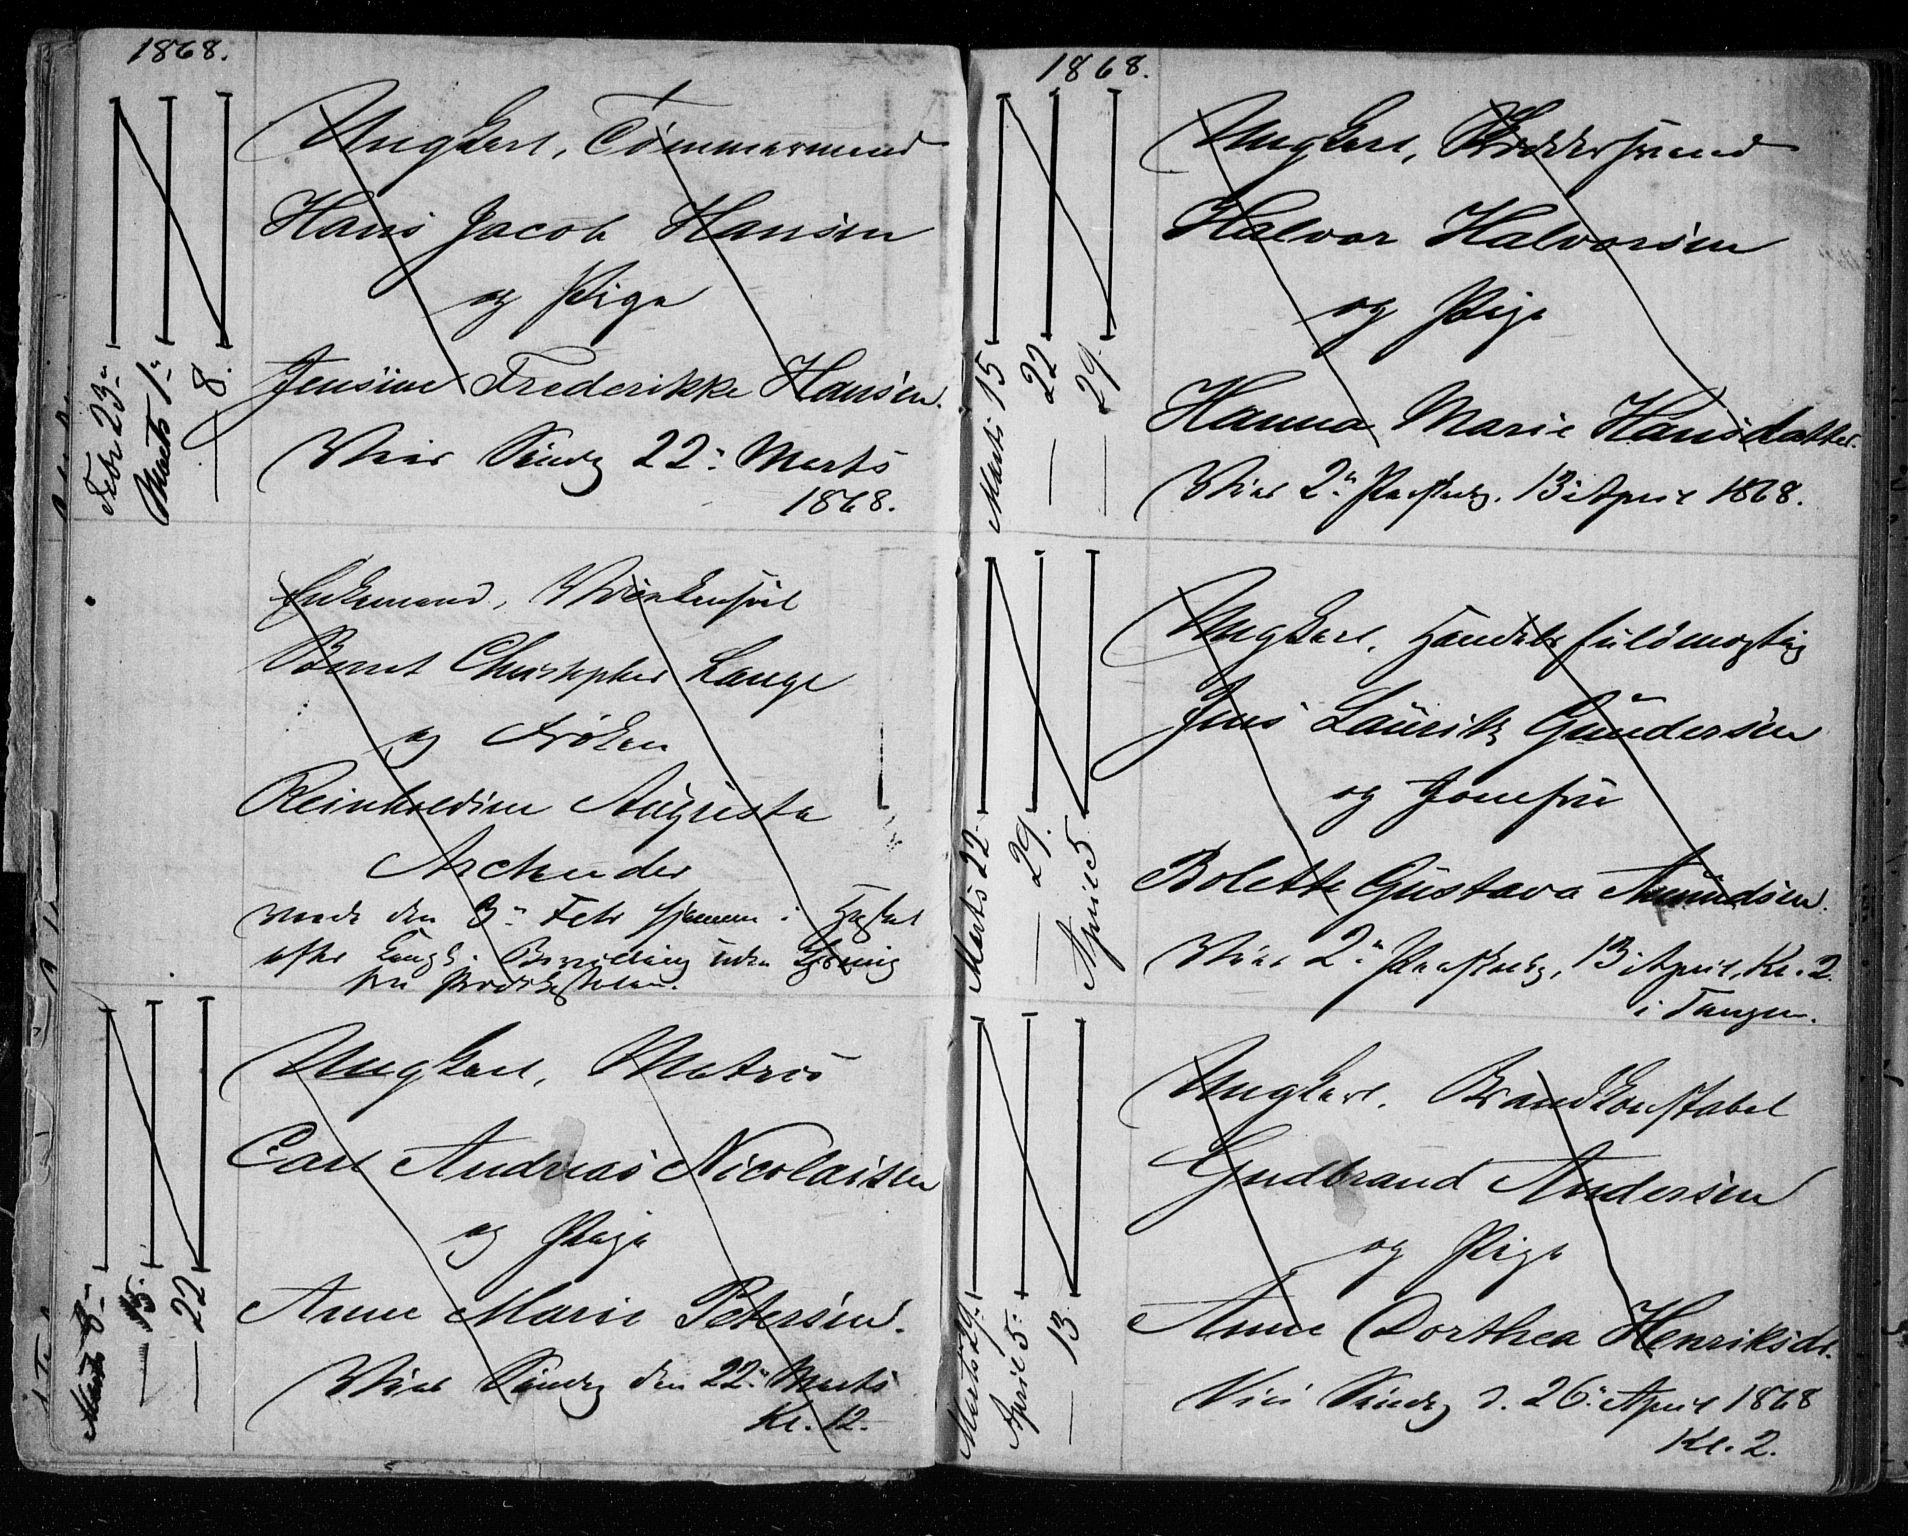 1868.
Febr 23.
Marts 1.
— 8.
Ungkarl, Tømmermand
Hans Jacob Hansen
og Pige
Jensine Frederikke Hansen.
Vies Søndag 22. Marts
1868.
Enkemand,
Bernt Christopher Lange
og Frøken
Reinholdine Augusta
viede den 3. Febr hjemme i
efter Kongl. Bevilling uden Lysning
fra Prækestolen.
Marts 8.
— 15.
— 22
Ungkarl, Matros
Carl Andreas Nicolaisen
og Pige
Anne Marie Petersen.
Vies Søndag den 22. Marts
Kl. 12.
1868.
Marts 15
— 22
— 29.
Ungkarl,
Halvor Halvorsen
og Pige
Hanna Marie Hansdatter.
Vies 2. Paaskedag. 13 April 1868.
Marts 22.
— 29.
April 5.
Ungkarl, Handelsfuldmægtig
Jens Lauritz Gundersen
og Jomfru
Bolette Gustava Amundsen.
Vies 2. Paaskedag, 13 April, Kl. 2.
i Tangen.
Marts 29.
April 5.
— 13.
Ungkarl, Brandkonstabel
Gudbrand Andersen
og Pige
Anne Dorthea Henriksdr.
Vies Søndag d. 26. April 1868
Kl. 2.